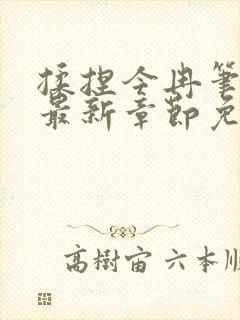 揉捏令冉笔
最新章节免
高樹宙 六本順